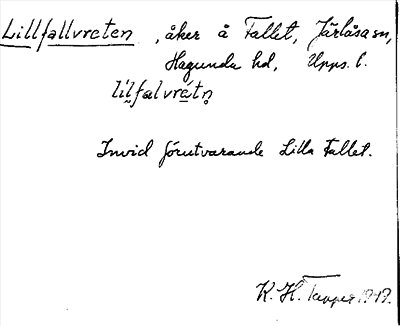 Lillfallvreten, åker å Fallet, Järlåsa sn,
Hagunda hd, Upps. l.
lilfalvretn
Invid förutvarande Lilla Fallet.
K. H. 1949.